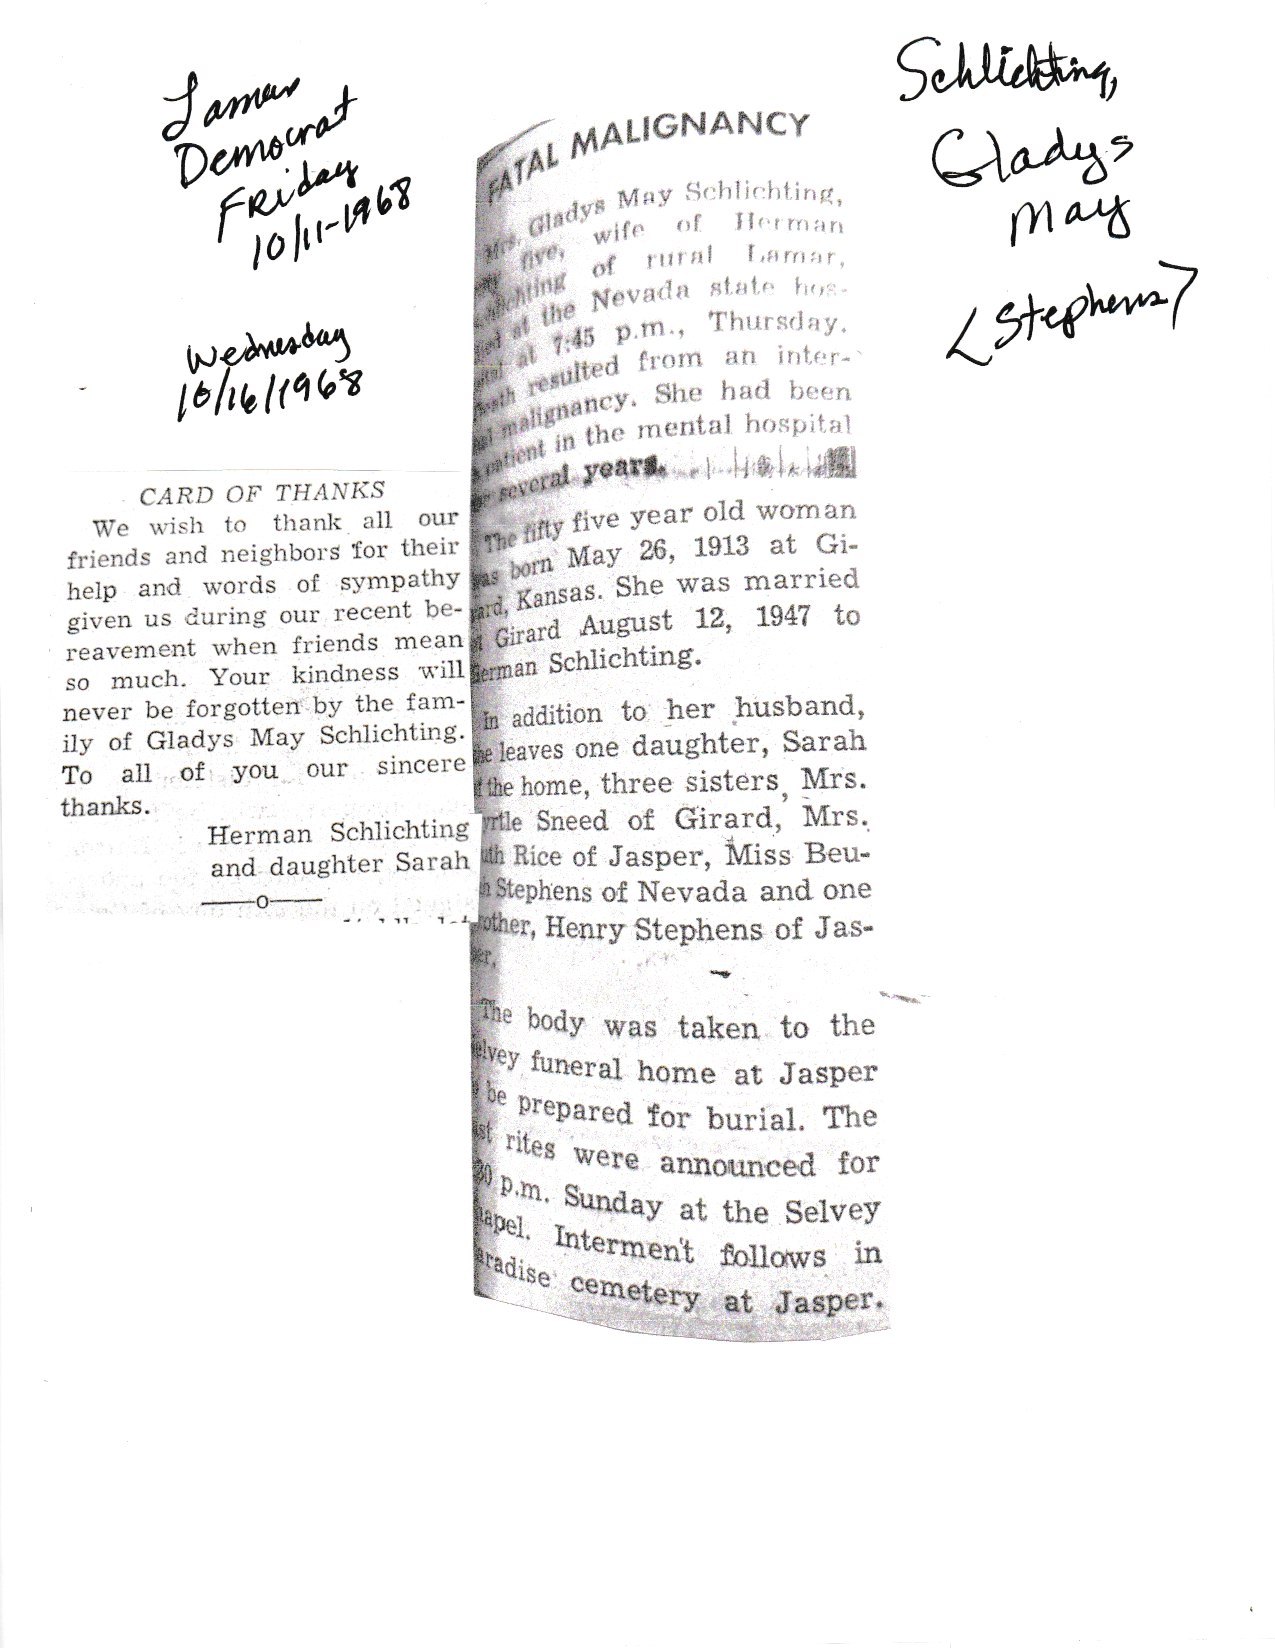 Lamar
Democrat
Friday
10/11-1968
Wednesday
10/16/1968
Schlichting,
Gladys
May
<Stephens>
CARD OF THANKS
We wish to thank all our
friends and neighbors for their
help and words of sympathy
given us during our recent be-
reavement when friends mean
so much. Your kindness will
never be forgotten by the fam-
ily of Gladys May Schlichting.
To all of you our sincere
thanks.
Herman Schlichting
and daughter Sarah
——o——
FATAL MALIGNANCY
Mrs. Gladys May Schlichting,
five, wife of Herman
of rural Lamar,
at the Nevada state hos-
at 7:45 p.m., Thursday.
resulted from an inter-
malignancy. She had been
patient in the mental hospital
several years.
The fifty five year old woman
was born May 26, 1913 at Gi-
ard, Kansas. She was married
Girard August 12, 1947 to
Herman Schlichting.
In addition to her husband,
he leaves one daughter, Sarah
the home, three sisters, Mrs.
rtle Sneed of Girard, Mrs.
uth Rice of Jasper, Miss Beu-
Stephens of Nevada and one
other, Henry Stephens of Jas-
er.
The body was taken to the
elvey funeral home at Jasper
be prepared for burial. The
st rites were announced for
30 p.m. Sunday at the Selvey
apel. Interment follows in
aradise cemetery at Jasper.